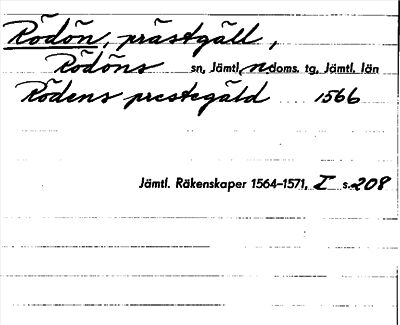 Rödön, prästgäll,
Rödöns sn, Jämtl. n doms. tg, Jämtl. län
Rödens prestegäld 1566
Jämtl. Räkenskaper 1564-1571, I s. 208